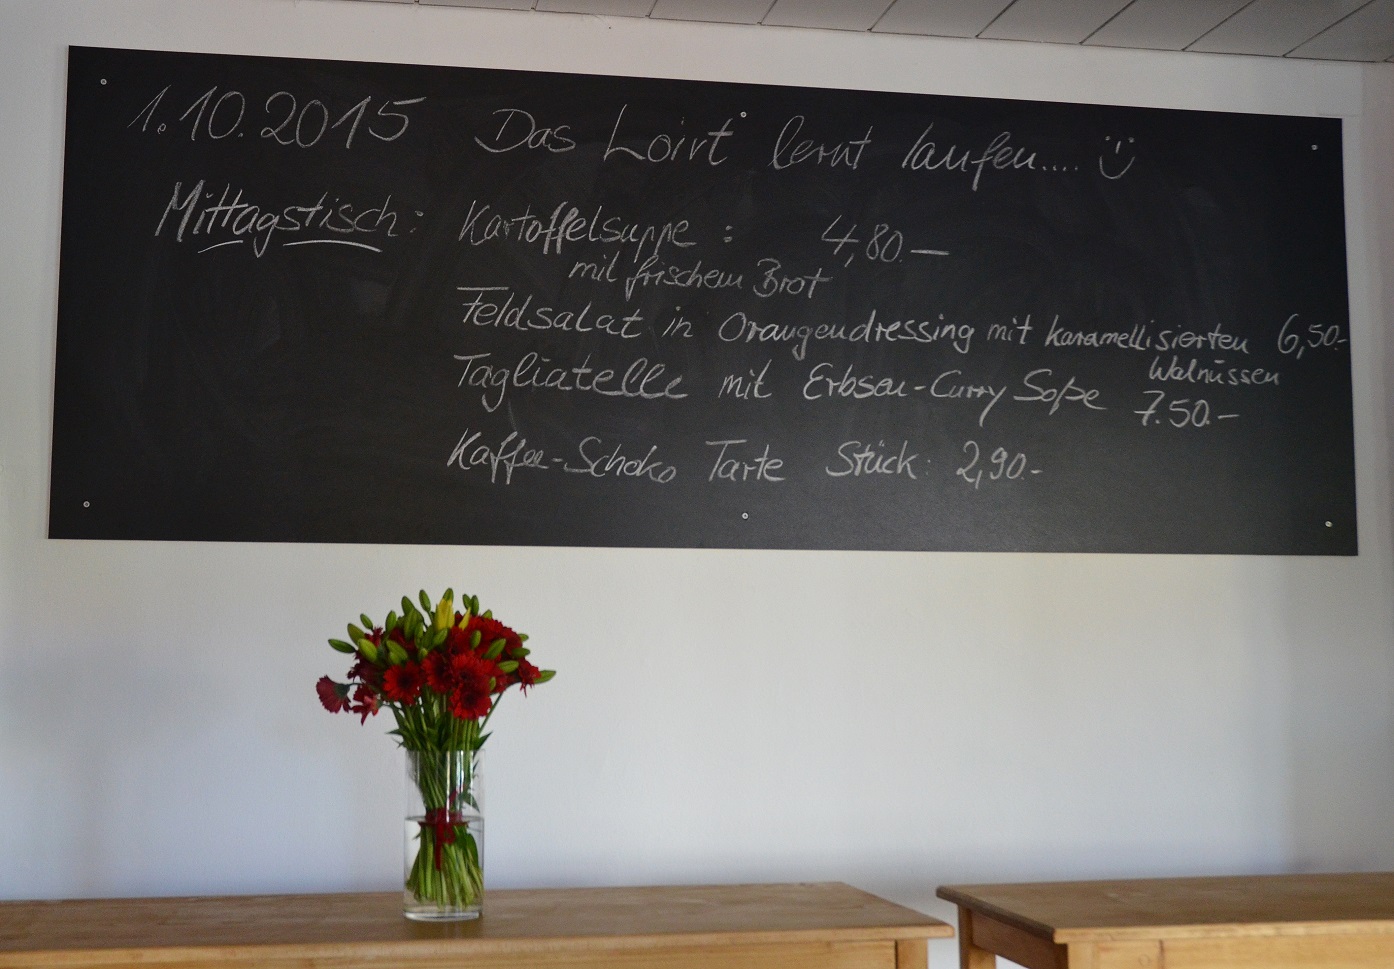 1.10.2015 Das Loirt lernt laufen....
Mittagstisch: Kartoffelsuppe : 4,80.—
mit frischem Brot
Feldsalat in Orangendressing mit karamellisierten 6,50.-
Walnüssen
Tagliatelle mit Erbsen-Curry Soße 7.50.-
Kaffee-Schoko Tarte Stück: 2,90.-